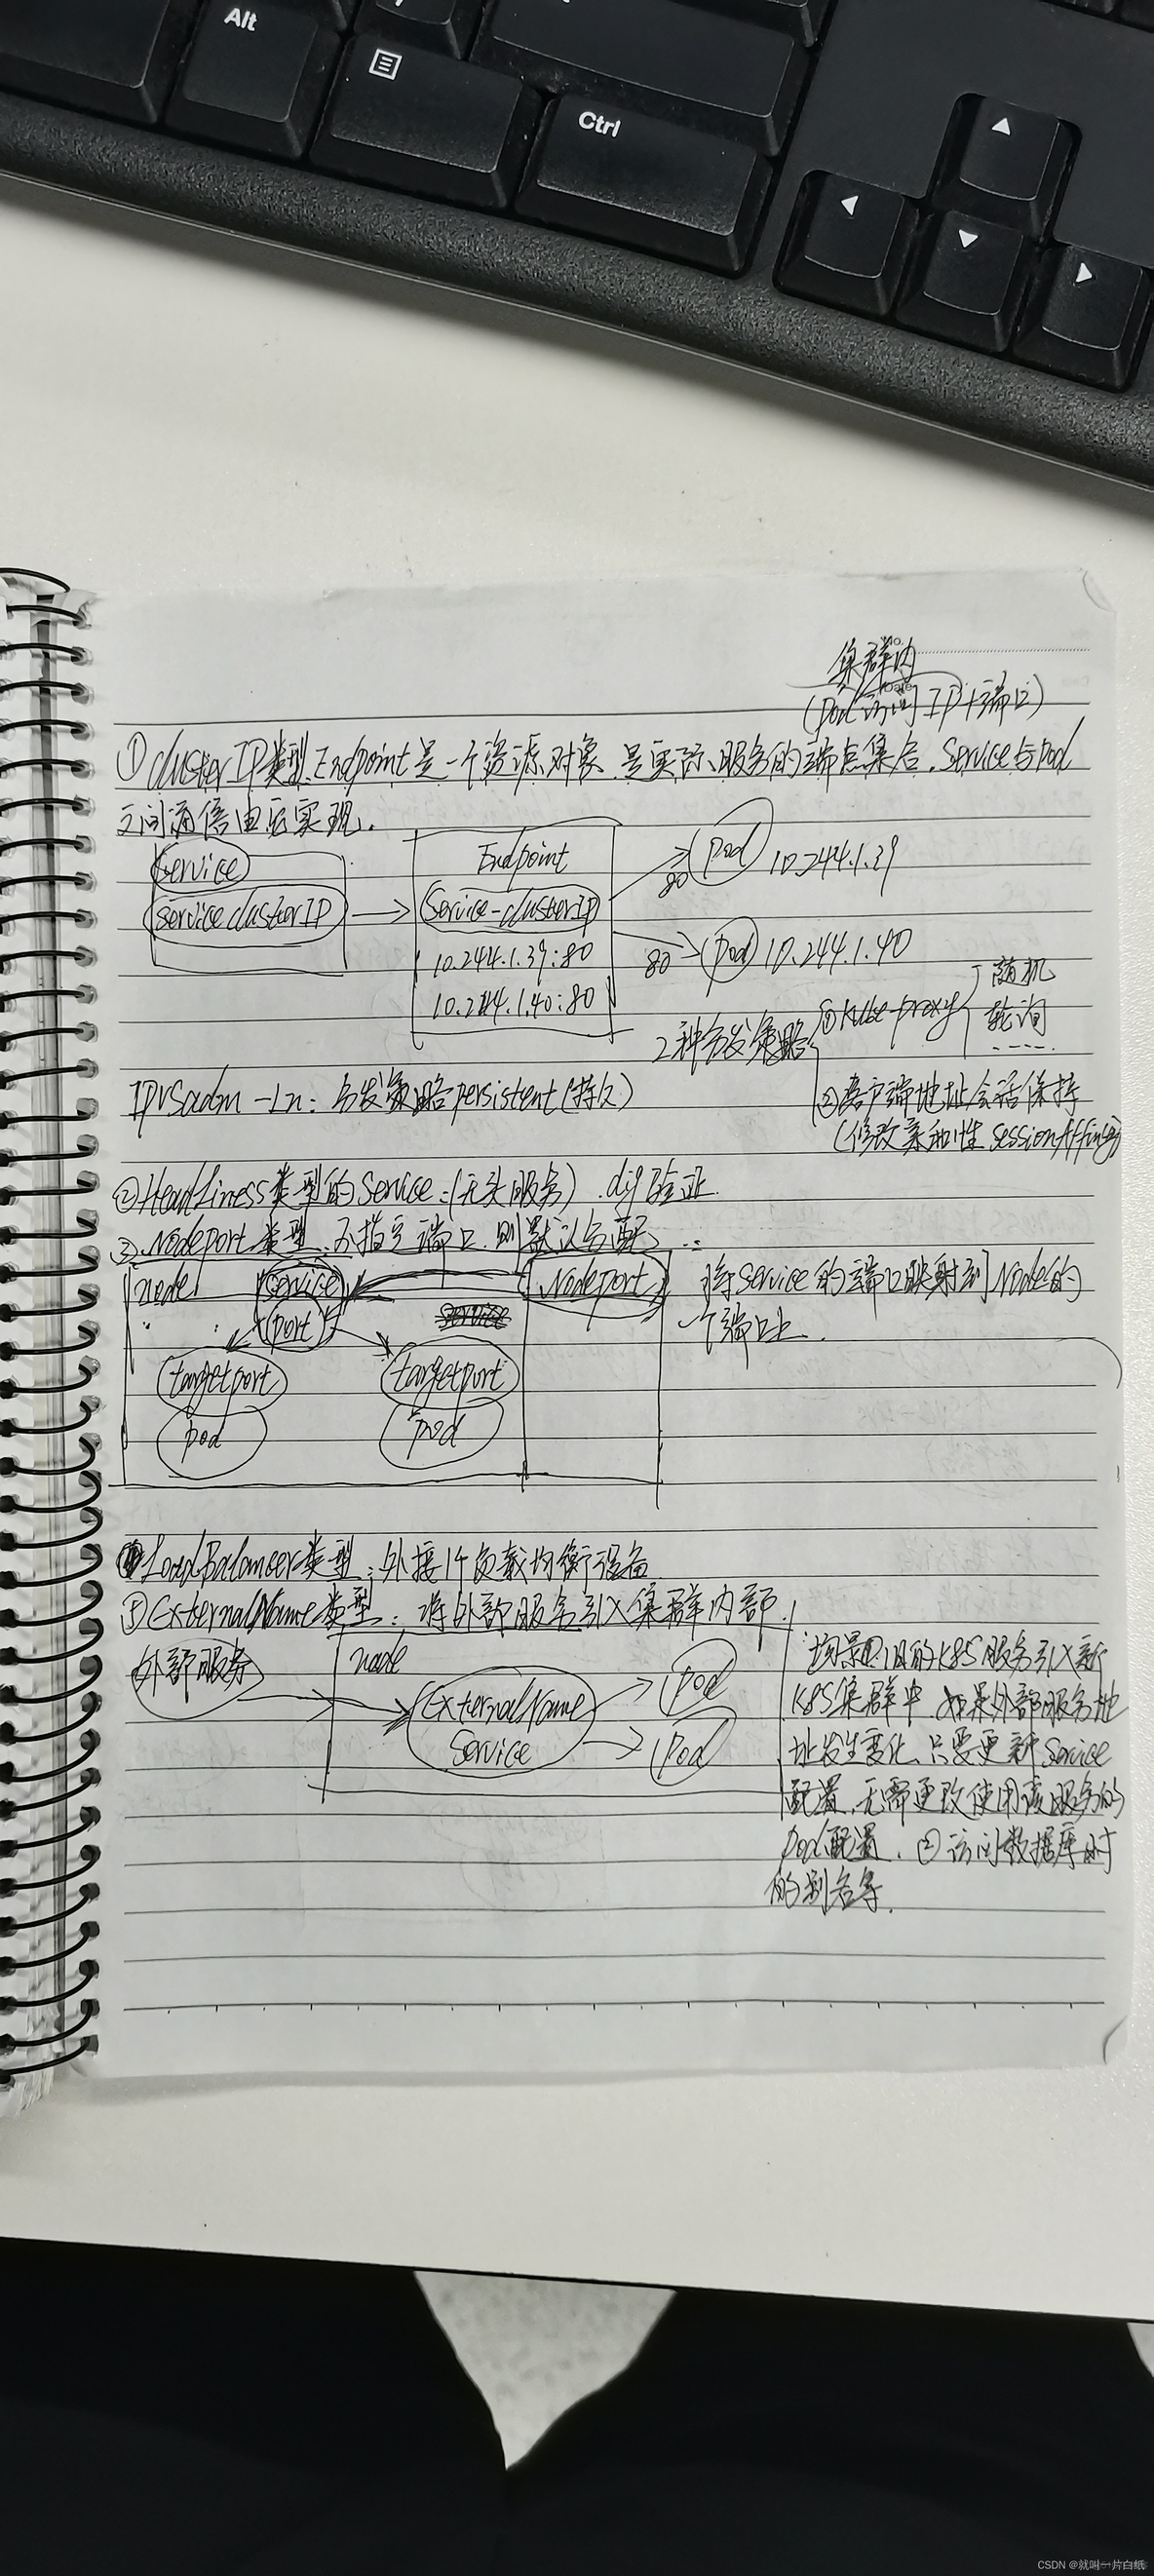 Alt
Ctrl
No.
Date
集群内
(pod访问IP+端口)
①clusterIP类型,Endpoint是一个资源对象,是实际服务的端点集合,Service与pod
之间通信由它实现.
Service
service clusterIP
Endpoint
Service-clusterIP
10.244.1.39:80
10.244.1.40:80
80 pod 10.244.1.39
80 pod 10.244.1.40
2种分发策略
①kube-proxy
随机
轮询
②客户端地址会话保持
(修改亲和性 sessionAffinity)
IPVSadm -Ln: 分发策略persistent(持久)
②HeadLiness类型的Service:(无头服务).dig验证.
③.Nodeport类型,不指定端口,则默认分配
node
service
(port)
Nodeport
service
targetport
targetport
pod
pod
将service的端口映射到Node的
一个端口上.
④LoadBalancer类型:外接1个负载均衡设备
⑤ExternalName类型:将外部服务引入集群内部.
外部服务
node
ExternalName
Service
pod
pod
场景①旧的K8S服务引入新
K8S集群中,如果外部服务地
址发生变化,只要更新Service
配置,无需更改使用该服务的
Pod配置.②访问数据库时
的别名等.
CSDN @就叫一片白纸